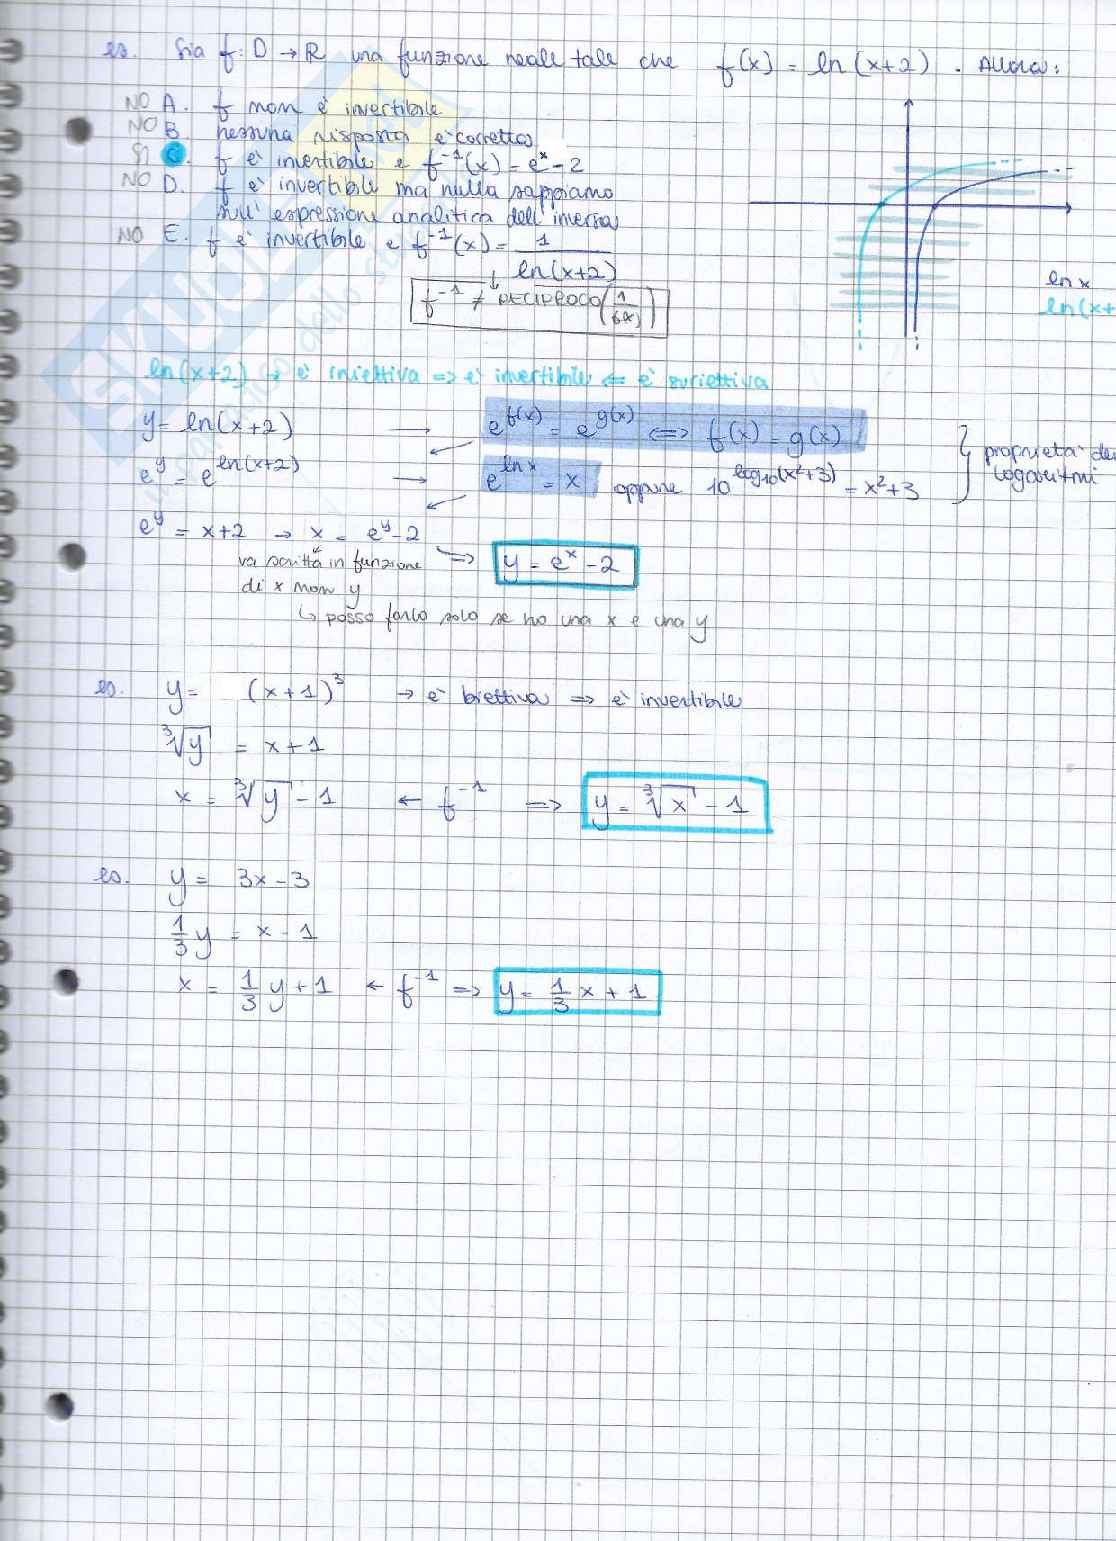 es. Sia f: D → R una funzione reale tale che f(x) = ln(x+2). Allora:
NO A. f non è invertibile.
NO B. nessuna risposta è corretta
SI C. f è invertibile e f⁻¹(x) = eˣ - 2
NO D. f è invertibile ma nulla sappiamo
sull'espressione analitica dell'inversa
NO E. f è invertibile e f⁻¹(x) = 1/ln(x+2)
f⁻¹ ≠ RECIPROCO (1/f(x))
ln x
ln(x+
ln(x+2) → è iniettiva => è invertibile <= è suriettiva
y = ln(x+2) → e^f(x) = e^g(x) <=> f(x) = g(x)
e^y = e^ln(x+2) → e^ln x = x oppure 10^log10(x²+3) = x²+3 } proprietà dei logaritmi
e^y = x+2 → x = e^y - 2
va scritta in funzione => y = eˣ - 2
di x non y
↳ posso farlo solo se ho una x e una y
es. y = (x+1)³ → è biettiva => è invertibile
∛y = x+1
x = ∛y - 1 ← f⁻¹ => y = ∛x - 1
es. y = 3x - 3
1/3 y = x - 1
x = 1/3 y + 1 ← f⁻¹ => y = 1/3 x + 1